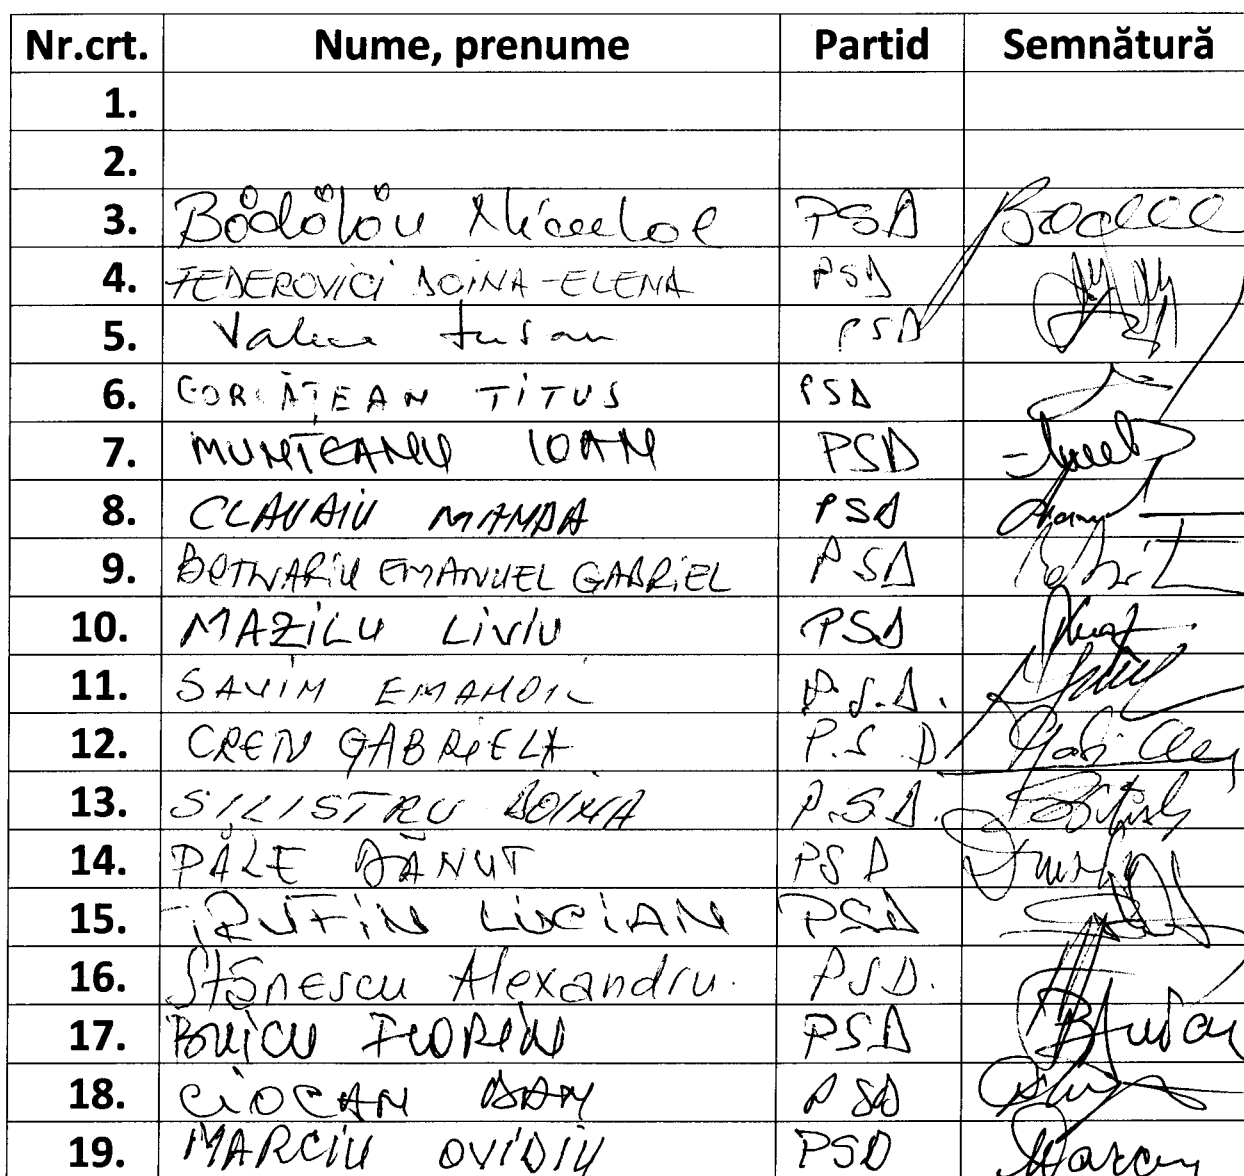 Nr.crt. Nume, prenume Partid Semnătură
1.
2.
3. Bădălău Niculae PSD
4. FEDEROVICI DOINA-ELENA PSD
5. PSD
6. CORLĂŢEAN TITUS PSD
7. MUNTEANU IOAN PSD
8. CLAUDIU MANDA PSD
9. BOTNARIU EMANUEL GABRIEL PSD
10. MAZILU LIVIU PSD
11. SAVIN EMANOIL P.S.D.
12. CREŢU GABRIELA P.S.D
13. SILISTRU DOINA P.S.D.
14. PALE DĂNUT PSD
15. TRUFIN LUCIAN PSD
16. Stănescu Alexandru. PSD.
17. BUICU FLORIN PSD
18. CIOCAN DAN PSD
19. MARCIU OVIDIU PSD